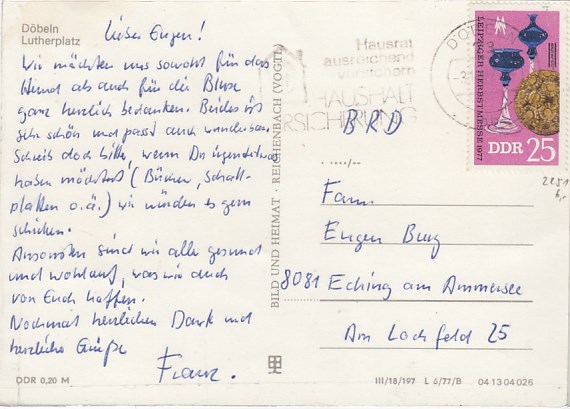 Döbeln
Lutherplatz
Lieber Eugen!
Wir möchten uns sowohl für das
Hemd als auch für die Bluse
ganz herzlich bedanken. Beides ist
sehr schön und paßt auch wunderbar.
Schreib doch bitte, wenn Du irgendetwas
haben möchtest (Bücher, Schall-
platten o.ä.) wir würden es gern
schicken.
Ansonsten sind wir alle gesund
und wohlauf, was wir auch
von Euch hoffen.
Nochmal herzlichen Dank und
herzliche Grüße
Franz.
DDR 0,20 M
BILD UND HEIMAT · REICHENBACH (VOGTL)
Hausrat
ausreichend
versichern
HAUSHALT
VERSICHERUNG
LEIPZIGER HERBSTMESSE 1977
DDR 25
2251
BRD
Fam.
Eugen Burg
8081 Eching am Ammersee
Am Lochfeld 25
III/18/197 L 6/77/B 04 13 04 026